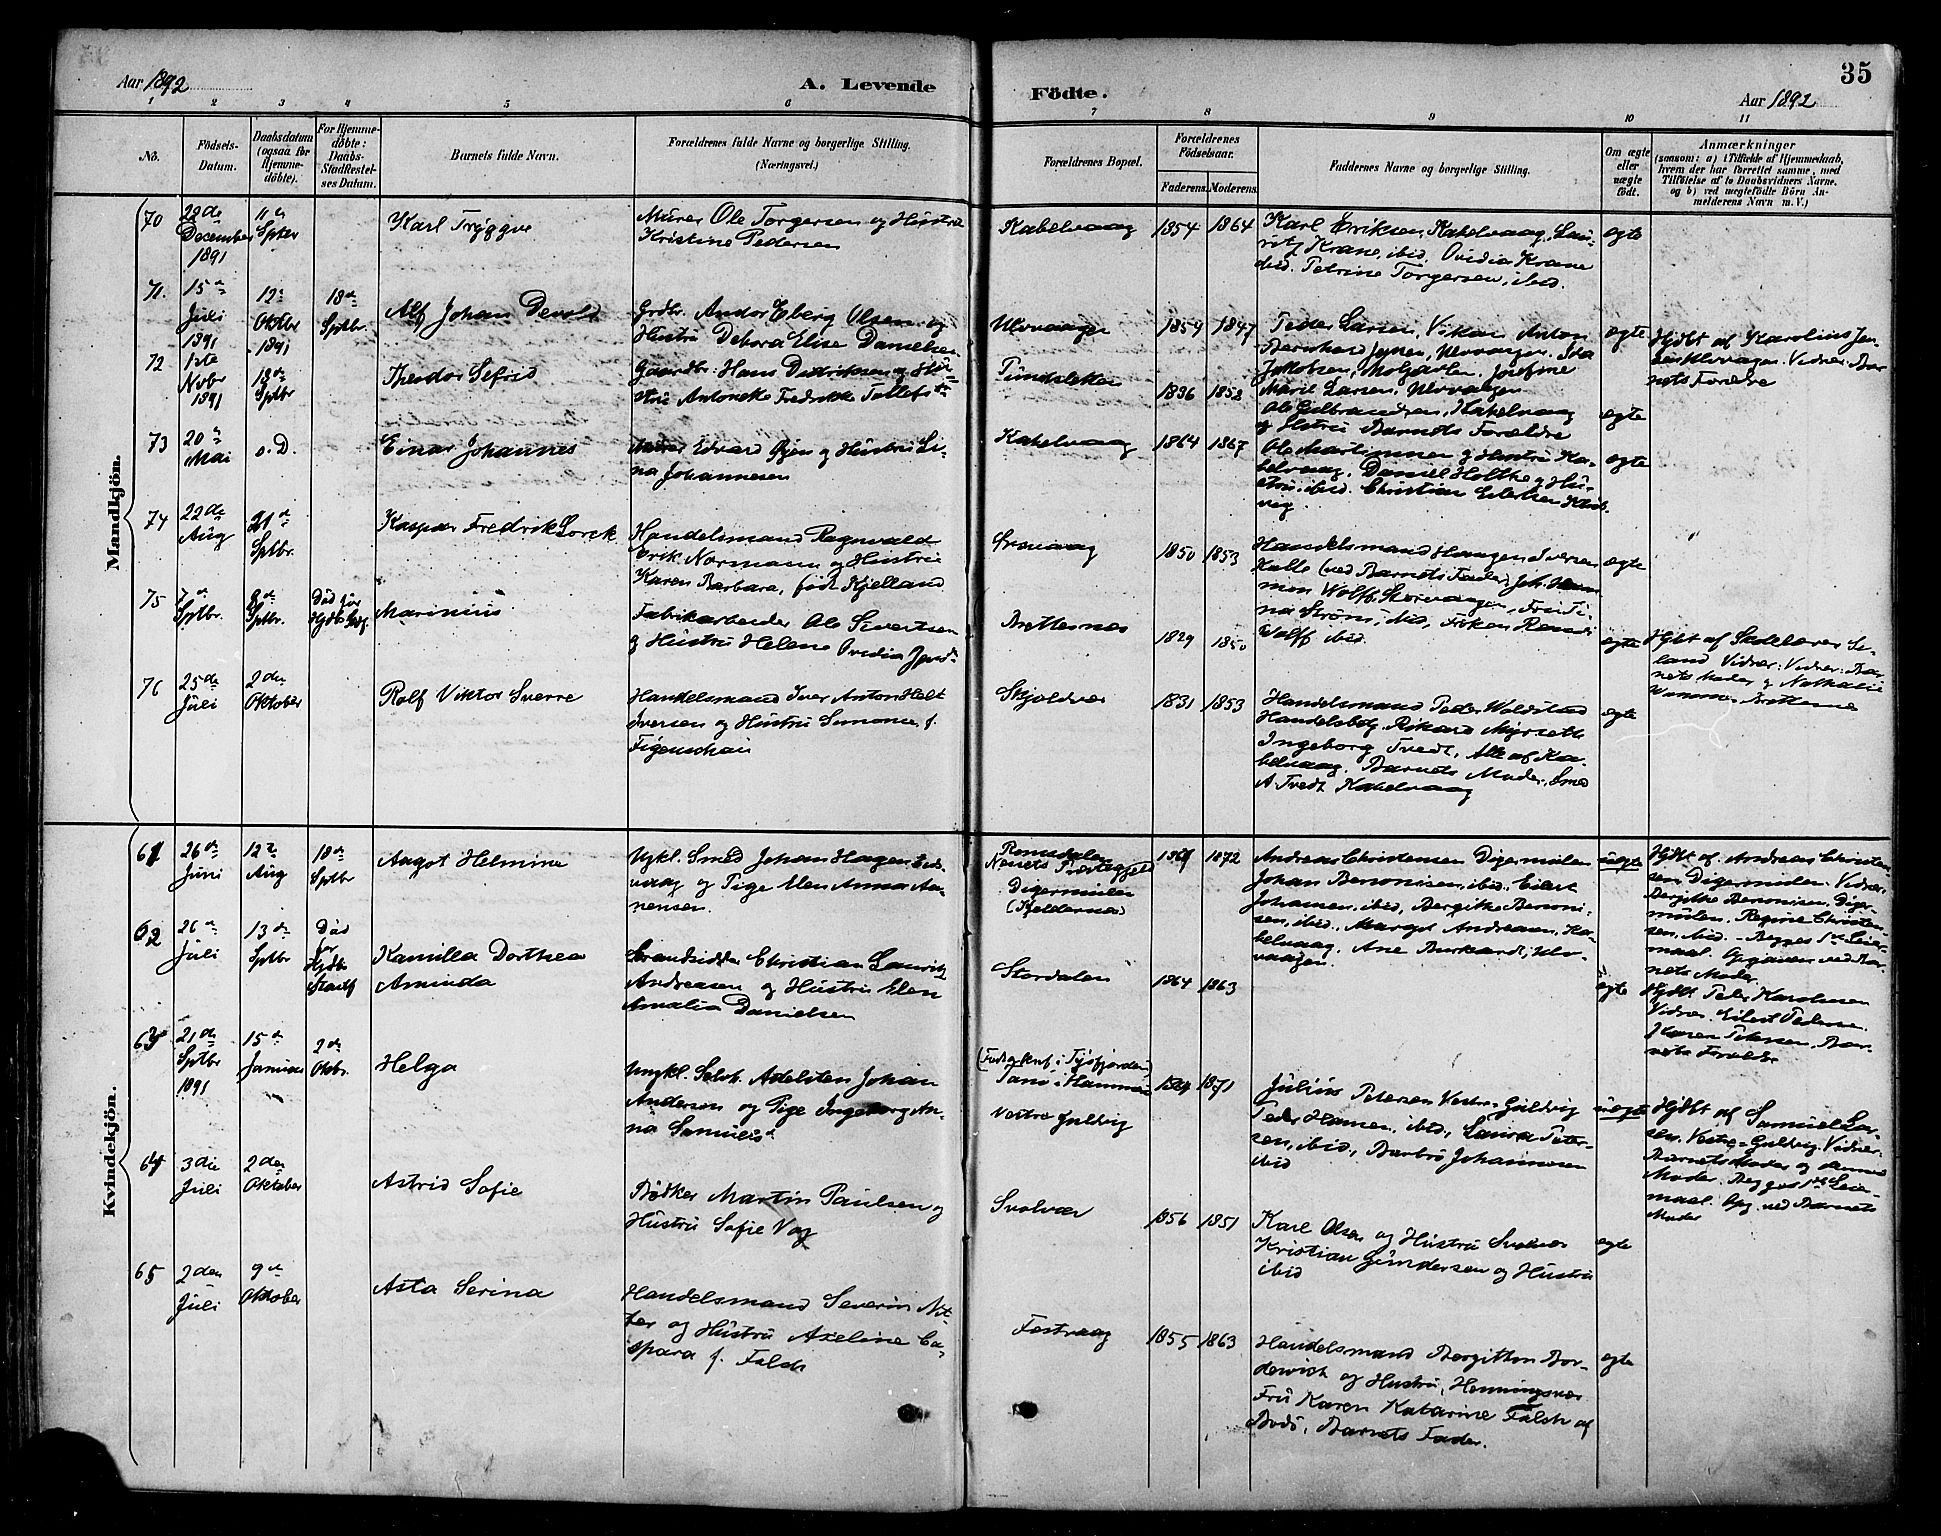 35
Aar 1892
A. Levende
Födte.
Aar 1892
1 2 3 4 5 6 7 8 9 10 11
No.
Födsels-
Datum.
Daabsdatum
(ogsaa for
Hjemme-
döbte).
For Hjemme-
döbte:
Daabs-
Stadfæstel-
ses Datum.
Barnets fulde Navn.
Forældrenes fulde Navne og borgerlige Stilling.
(Næringsvei.)
Forældrenes Bopæl.
Forældrenes
Födselsaar.
Faderens.
Moderens.
Faddernes Navne og borgerlige Stilling.
Om ægte
eller
uægte
födt.
Anmærkninger
(saasom: a) i Tilfælde af Hjemmedaab,
hvem der har forrettet samme, med
Tilföielse af to Daabsvidners Navne.
og b) ved uægtefödte Börn An-
melderens Navn m. V.)
Mandkjön.
70
December
1891
11te
Sptbr
Karl Tryggve
Murer Ole Torgersen og Hustru
Kristine Pedersen
Kabelvaag
1854
1864
Karl Eriksen, Kabelvaag, Lau-
Krane, ibid, Ovidia Krane
ibid. Petrine Torgersen, ibid.
ægte
71.
15de
Juli
1891
12te
Oktbr
1891
18de
Sptbr.
Alf Johan Devold
Grdbr. Andor Eberg Olsen og
Hustru Debora Elise Danielsen
Ulvvaagen
1859
1847
Peder Larsen, Vikan, Anton
Bernhard Jensen, Ulvvaagen.
Jakobsen, Molgavlen. Josefine
Marie Larsen, Ulvvaagen
ægte
Hjdbt af Karolius Jen-
sen Ulvvaagen. Vidner: Bar-
nets Forældre
72
1ste
Novbr
1891
18de
Sptbr
Theodor Sefrid
Gaardbr. Hans Dedriksen og Hu-
stru Antonette Fredrikke Tollefsdtr
Pundsletten
1836
1852
Ole Gulbrandsen, Kabelvaag
og Hstru Barnets Forældre
ægte
73
20de
Mai
s. D.
Einar Johannes
Murer Edvard Gjen og Hustru Li-
na Johannesen
Kabelvaag
1864
1867
Ole Martinussen og Hustru Ka-
belvaag, Daniel Holtke og Hu-
stru, ibid. Christian Eilertsen
ægte
74
22de
Aug
21de
Sptbr.
Kaspar Fredrik Lorck
Handelsmand Ragnvald
Erik Normann og Hustru
Karen Barbara, født Kjelland
1850
1853
Handelsmand Haagen Iversen
Kalle (ved Barnets Fader) Joh. Ham
mon Wolff, Storvaagen, Fru Ti-
na Strøm, ibid, Frøken Ramdi
Wolff ibid.
ægte
75
7de
Sptbr.
8de
Sptbr.
Død før
Hjdb Stdf.
Marinius
Fabrikarbeider Ole Sivertsen
og Hustru Helene Ovedia
Brettesnes
1829
1850
ægte
Hjdbt af Skolelærer Se-
land Vidner: Bar-
nets Moder og Nathalie
76
25de
Juli
2den
Oktober
Rolf Viktor Sverre
Handelsmand Iver Anton Helt
Iversen og Hustru Simone f.
Figenschau
Skjoldvær
1831
1853
Handelsmand Peder Woldstad
Handelsbetj. Rikard Myrseth
Ingeborg Tvedt, Alle af Ka-
belvaag. Barnets Moder, Smed
A Tvedt Kabelvaag
ægte
Kvindekjön.
61
26de
Juni
12te
Aug
18de
Sptbr
Aagot Helmine
Ugkl. Smed Johan Hagen
og Pige Elen Anna Aa-
nensen.
Romsdalen
Nessets Præstegjeld
Digermulen
(Kjeldernes)
1872
Andreas Christensen Digermulen
Johan Benonisen, ibid, Eilert
Johansen, ibid, Bergitte Benoni-
sen, ibid, Margot Andreasen, Ka-
belvaag, Ane Burkardt, Ulv-
vaagen.
uægte
Hjdbt af Andreas Christen-
sen Digermulen. Vidner:
Bergitte Benonisen, Diger-
mulen, Regine Christen-
sen, ibid. – Begges 1ste Leier-
maal. Opgaven ved Bar-
nets Moder
62
26de
Juli
13de
Sptbr
Død
før
Hjdb
Stadf
Kamilla Dorthea
Aminda
Strandsidder Christian Lauritz
Andreasen og Hustru Elen
Amalia Danielsen
Stordalen
1864
1863
ægte
Hjdbt Peder Karolusen
Vidner. Eilert Pedersen
Petersen, Bar-
nets Forældre
63
21de
Sptbr
1891
15de
Januar
2den
Oktbr.
Helga
Ungkl. Adelsten Johan
Andersen og Pige Ingeborg An-
na Samuelsd.
Vestre Guldvig
1871
Julius Petersen Vestre-Guldvig
Peder Hansen, ibid, Laura Peter-
sen, ibid, Barbro Johannesen
ibid
uægte
Hjdbt af Samuel Lar-
sen, Vestre-Guldvig, Vidner:
Barnets Moder og dennes
Moder. Begges 1ste Leier-
maal. Opg. ved Barnets
Moder
64
3die
Juli
2den
Oktober
Astrid Sofie
Bødker Martin Paulsen og
Hustru Sofie Vag
Svolvær
1856
1851
Karl Olsen og Hustru Svolvær
Kristian Gundersen og Hustru
ibid
ægte
65
2den
Juli
9de
Oktober
Asta Serina
Handelsmand Severin Nit-
ter og Hustru Axeline Ca-
spara f. Falch
Festvaag
1855
1863
Handelsmand Bergithon Bor-
dewich og Hustru, Henningsvær
Fru Karen Katarine Falch af
Bodø, Barnets Fader.
ægte